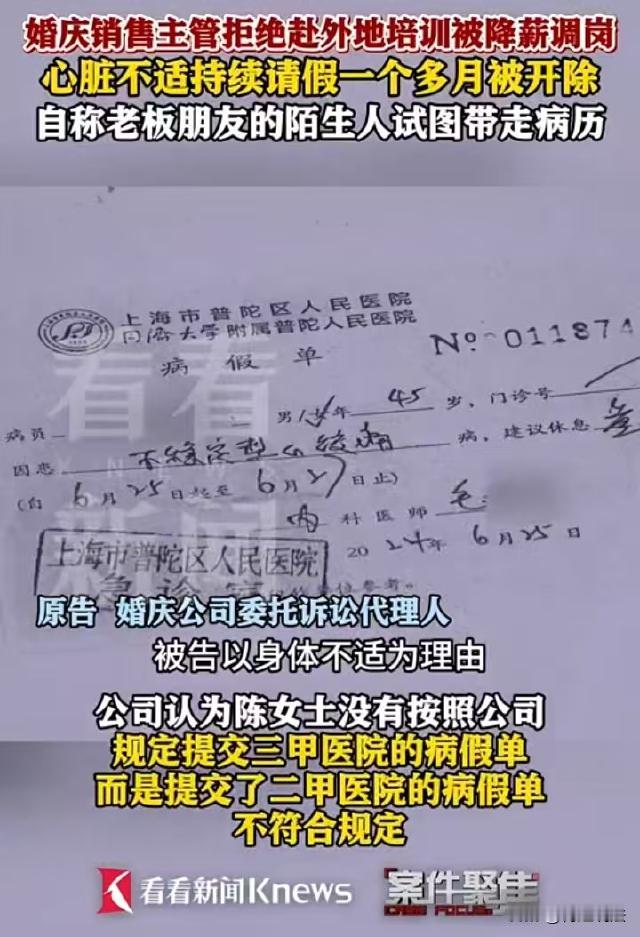 婚庆销售主管拒绝赴外地培训被降薪调岗
心脏不适持续请假一个多月被开除
自称老板朋友的陌生人试图带走病历
上海市普陀区人民医院
同济大学附属普陀人民医院
病假单
No 011874
病员 男/女年 45 岁，门诊号
因患 不稳定型心绞痛 病，建议休息
(自 6月25日起至 6月27日止)
内科医师 毛
2024年6月25日
上海市普陀区人民医院
急诊
看看
新闻
原告 婚庆公司委托诉讼代理人
被告以身体不适为理由
公司认为陈女士没有按照公司
规定提交三甲医院的病假单
而是提交了二甲医院的病假单
不符合规定
看看新闻Knews
案件聚焦
CASE FOCUS